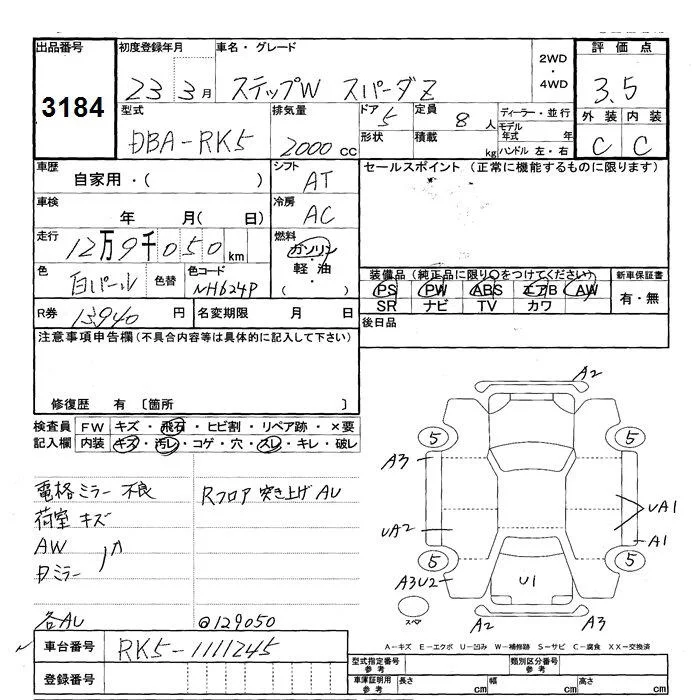 出品番号 初度登録年月 車名・グレード 2WD・4WD 評価点
3184 23 3月 ステップW スパーダZ 3.5
型式 排気量 ドア 5 定員 8人 ディーラー・並行 外装 内装
DBA-RK5 2000cc 形状 積載 kg モデル年式 年 ハンドル 左・右 C C
車歴 シフト セールスポイント (正常に機能するものに限ります)
自家用・( ) AT
車検 年 月( 日) 冷房 AC
走行 12万9千050km 燃料 ガソリン・軽油・( )
色 白パール 色替 色コード NH624P
装備品 (純正品に限り○をつけてください) 新車保証書
PS PW ABS エアB AW 有・無
SR ナビ TV カワ
R券 13940 円 名変期限 月 日 後日品
注意事項申告欄 (不具合内容等は具体的に記入して下さい)
修復歴 有 〔箇所 〕
検査員記入欄 FW キズ・飛石・ヒビ割・リペア跡・×要
内装 キズ・汚レ・コゲ・穴・スレ・キレ・破レ
電格ミラー 不良 Rフロア 突き上げ AU
荷室 キズ
AW
ミラー
各AU @129050
A2
5 5
A3
UA2 UA1
A1
5 5
A3U2 U1
スペ A2 A3
A-キズ E-エクボ U-凹み W-補修跡 S-サビ C-腐食 XX-交換済
車台番号 RK5-1111245
登録番号
型式指定番号 参考 類別区分番号 参考
車庫証明用 参考 長さ cm 幅 cm 高さ cm